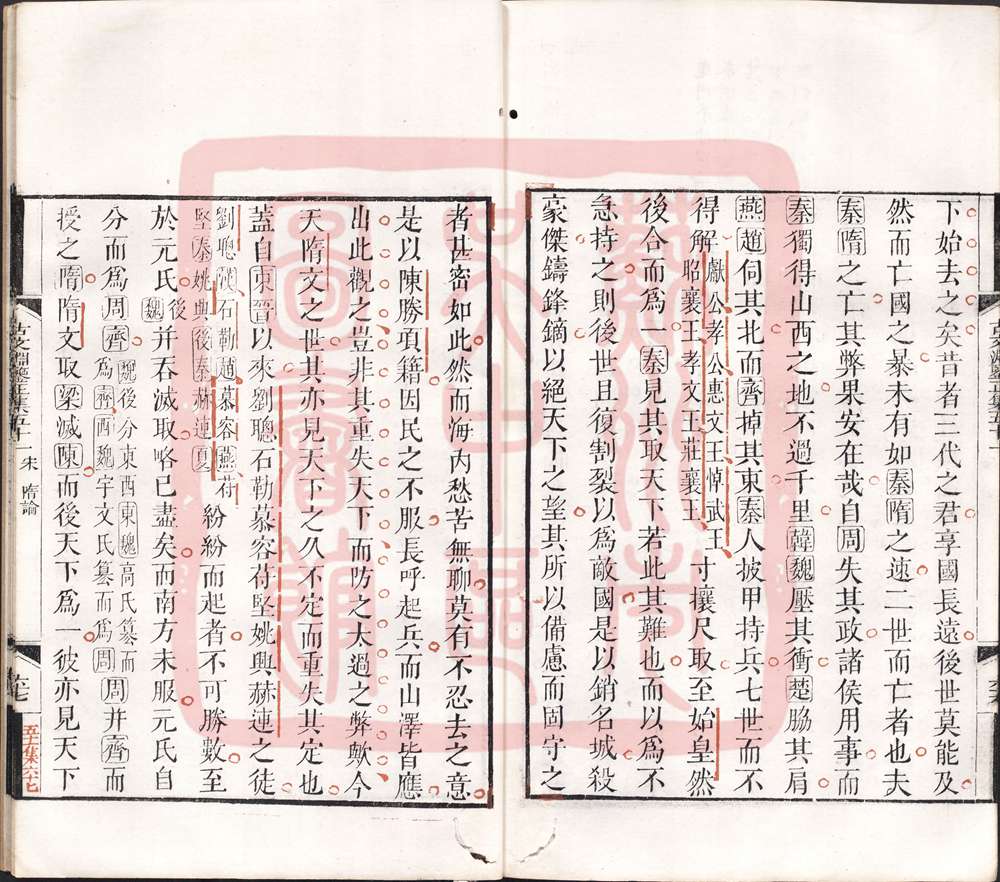 下始去之矣昔者三代之君享國長遠後世莫能及
然而亡國之暴未有如秦隋之速二世而亡者也夫
秦隋之亡其弊果安在哉自周失其政諸侯用事而
秦獨得山西之地不過千里韓魏壓其衝楚脇其肩
燕趙伺其北而齊掉其東秦人披甲持兵七世而不
得解獻公孝公惠文王悼武王昭襄王孝文王莊襄王寸攘尺取至始皇然
後合而爲一秦見其取天下若此其難也而以爲不
急持之則後世且復割裂以爲敵國是以銷名城殺
豪傑鑄鋒鏑以絕天下之望其所以備慮而固守之
者甚密如此然而海內愁苦無聊莫有不忍去之意
是以陳勝項籍因民之不服長呼起兵而山澤皆應
出此觀之豈非其重失天下而防之太過之弊歟今
天隋文之世其亦見天下之久不定而重失其定也
蓋自東晉以來劉聰石勒慕容苻堅姚興赫連之徒
劉聰漢石勒趙慕容燕苻堅秦姚興後秦赫連夏紛紛而起者不可勝數至
於元氏後魏并吞滅取略已盡矣而南方未服元氏自
分而爲周齊魏後分東西東魏高氏篡而爲齊西魏宇文氏篡而爲周并齊而
授之隋隋文取梁滅陳而後天下爲一彼亦見天下
宋 隋論